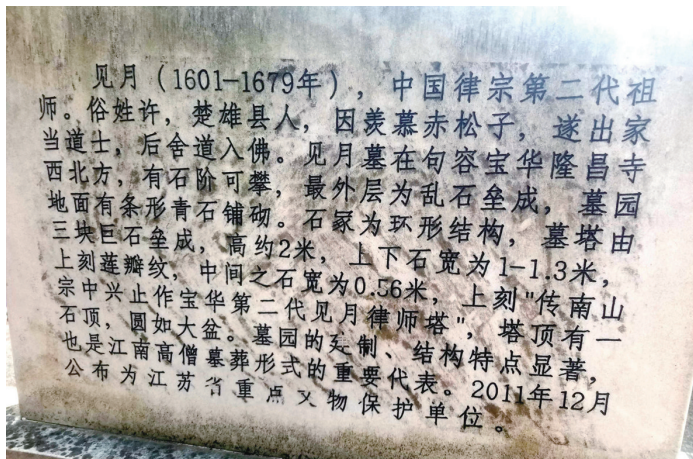 见月（1601—1679年），中国律宗第二代祖
师。俗姓许，楚雄县人，因羡慕赤松子，遂出家
当道士，后舍道入佛。见月墓在句容宝华隆昌寺
西北方，有石阶可攀，最外层为乱石垒成，墓园
地面有条形青石铺砌。石冢为环形结构，墓塔由
三块巨石垒成，高约2米，上下石宽为1-1.3米，
上刻莲瓣纹，中间之石宽为0.56米，上刻"传南山
宗中兴止作宝华第二代见月律师塔"，塔顶有一
石顶，圆如大盆。墓园的建制、结构特点显著，
也是江南高僧墓葬形式的重要代表。2011年12月
公布为江苏省重点文物保护单位。